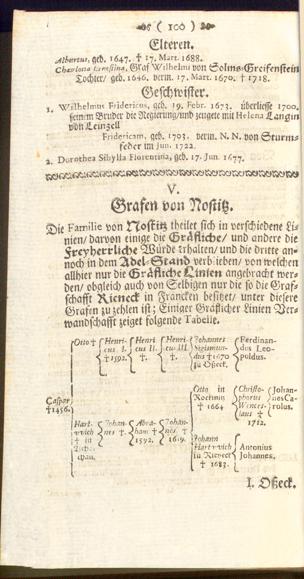 ( 100 )
Elteren.
Albertus, geb. 1647. † 17. Mart. 1688.
Charlotta Ernestina, Graf Wilhelmi von Solms-Greifenstein
Tochter/ geb. 1646. verm. 17. Mart. 1670. † 1718.
Geschwister.
1. Wilhelmus Fridericus, geb. 19. Febr. 1673. überliesse 1700.
seinem Bruder die Regierung/und zeugete mit Helena Langin
von Leinzell
Fridericam, geb. 1703. verm. N. N. von Sturm-
feder im Jun. 1722.
2. Dorothea Sibylla Florentina, geb. 17. Jun. 1677.
V.
Grafen von Nostitz.
Die Familie von Nostitz theilet sich in verschiedene Li-
nien/ darvon einige die Gräfliche/ und andere die
Freyherrliche Würde erhalten/ und die dritte an-
noch in dem Adel-Stand verblieben/ von welchen
allhier nur die Gräfliche Linien angebracht wer-
den/ obgleich auch von Selbigen nur die so die Graf-
schafft Rieneck in Francken besitzet/ unter diesere
Grafen zu zehlen ist; Einiger Gräflicher Linien Ver-
wandschafft zeiget folgende Tabelle.
Caspar
† 1456.
Otto †
Henri-
cus I.
† 1592.
Henri-
cus II.
†.
Henri-
cus III.
†.
Johannes
Sigismun-
dus † 1670
zu Oßeck.
Ferdinan-
dus Leo-
poldus.
Hart-
wich
† in
Tscho-
chau.
Johan-
nes †
Abra-
ham †
1592.
Johan-
nes †
1619.
Otto in
Rockniz
† 1664
Christo-
phorus
Wences-
laus †
1712.
Johan-
nes Ca-
rolus.
Johann
Hartwich
zu Rieneck
† 1683.
Antonius
Johannes.
I. Oßeck.